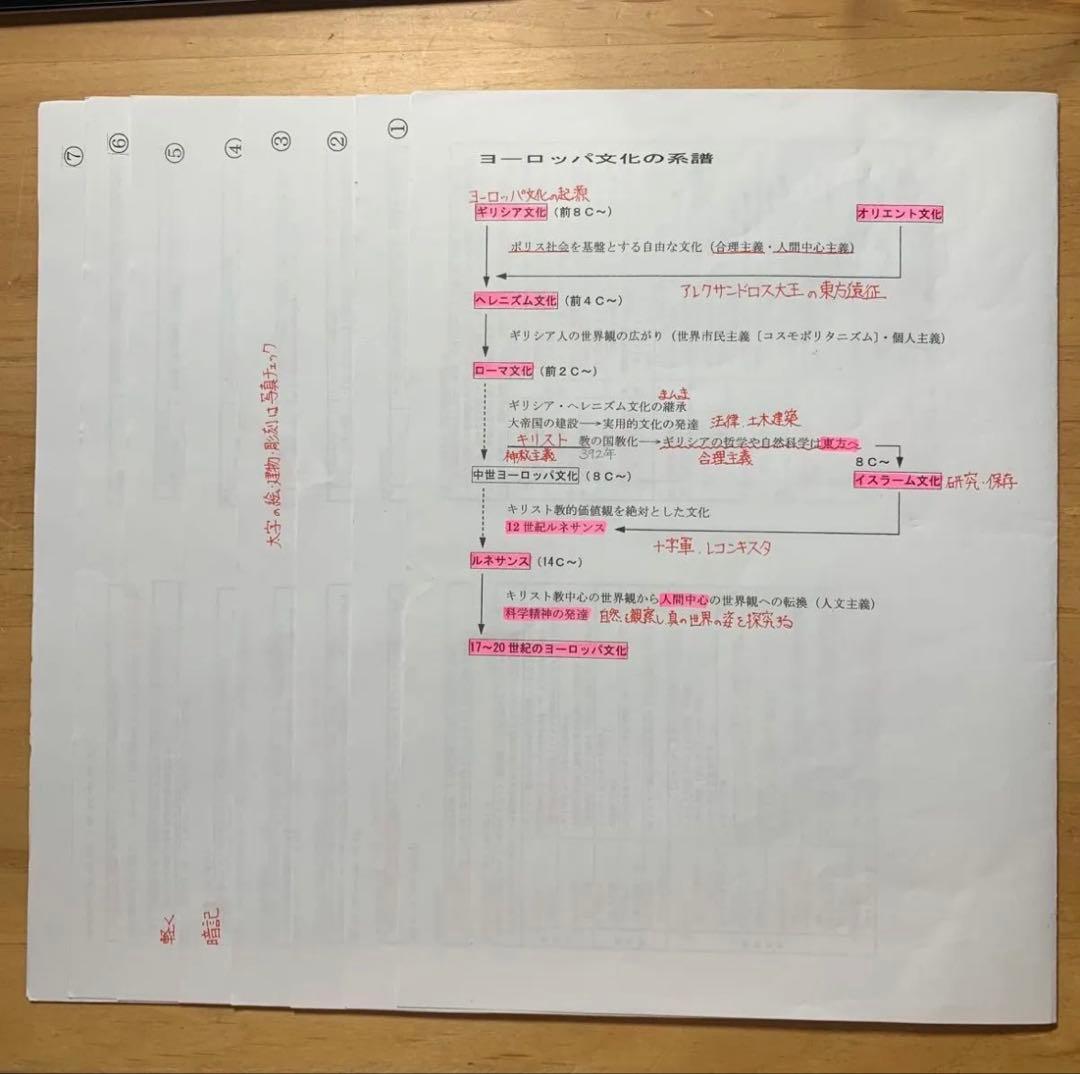 ⑦
⑥
⑤
④
③
②
①
太字の絵・建物・彫刻は写真チェック
軽く
暗記
ヨーロッパ文化の系譜
ヨーロッパ文化の起源
ギリシア文化(前8C~) オリエント文化
ポリス社会を基盤とする自由な文化(合理主義・人間中心主義)
アレクサンドロス大王の東方遠征
ヘレニズム文化(前4C~)
ギリシア人の世界観の広がり(世界市民主義〔コスモポリタニズム〕・個人主義)
ローマ文化(前2C~)
まんま
ギリシア・ヘレニズム文化の継承
大帝国の建設→実用的文化の発達 法律、土木建築
キリスト教の国教化→ギリシアの哲学や自然科学は東方へ
神教主義 392年 合理主義
8C~
中世ヨーロッパ文化(8C~) イスラーム文化 研究・保存
キリスト教的価値観を絶対とした文化
12世紀ルネサンス
十字軍、レコンキスタ
ルネサンス(14C~)
キリスト教中心の世界観から人間中心の世界観への転換(人文主義)
科学精神の発達 自然を観察し真の世界の姿を探究する
17~20世紀のヨーロッパ文化